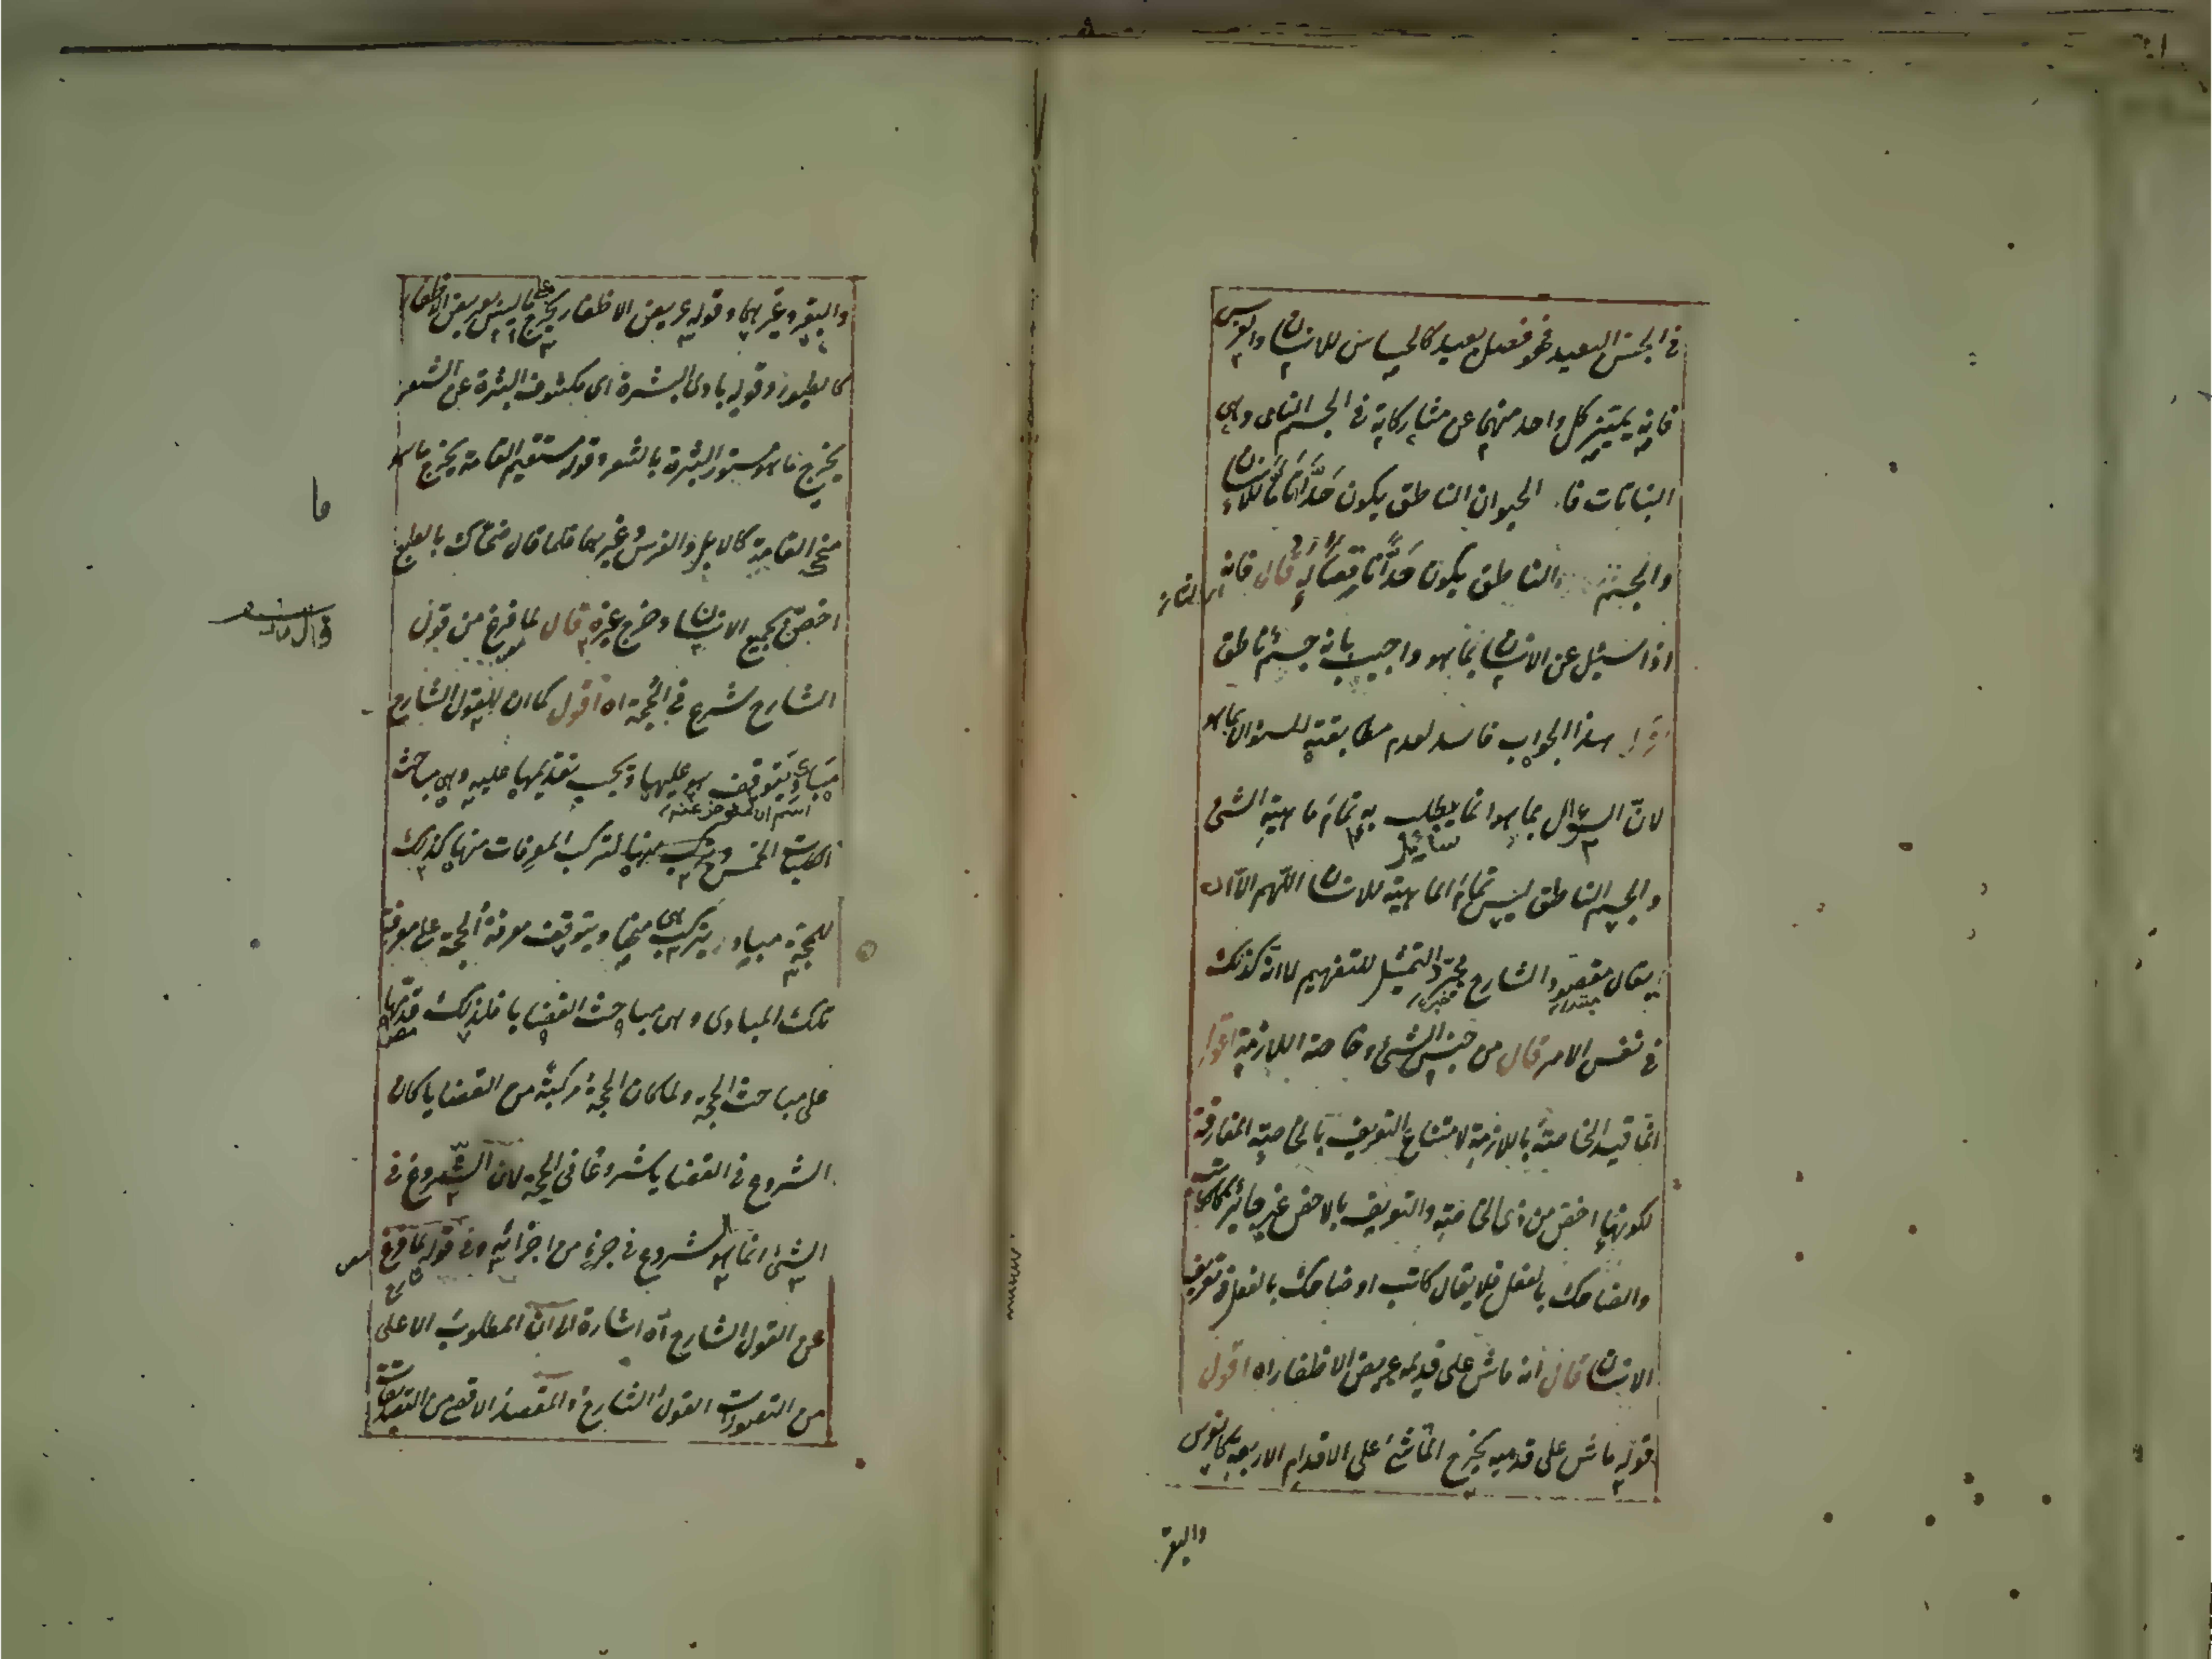 في الجنس البعيد فهو فصل بعيد كالحساس للانسان والفرس
فانه يميز كل واحد منهما عن مشاركاته في الجسم النامى وهى
النباتات فا الحيوان الناطق يكون حدًّا تامًّا للانسان
والجسم الناطق يكون حدًّا ناقصًا له قال فانه
اذا سئل عن الانسان بما هو واجيب بانه جسم ناطق
اقول هذا الجواب فاسد لعدم مطابقته للسؤال بما هو
لانّ السؤال بما هو انما يطلب به تمام ماهية الشئ
سائل
والجسم الناطق ليس تمام الماهية للانسان اللّهم الّا ان
يقال مقصود الشارح مجرّد التمثيل للتفهيم لا انه كذلك
مبتداء خبره
في نفس الامر قال من جنس الشئ وخاصته اللازمة اقول
انما قيد الخاصة باللازمة لامتناع التعريف بالخاصة المفارقة
لكونها اخص من ذى الخاصة والتعريف بالاخص غير جائز كالكاتب
والضاحك بالفعل فلا يقال كاتب او ضاحك بالفعل في تعريف
الانسان قال انه ماش على قدميه عريض الاظفار اه اقول
قوله ماش على قدميه يخرج الماشئ على الاقدام الاربعة كالفرس
والبقر
والبقر وغيرهما وقوله عريض الاظفار يخرج ما ليس بعريض الاظفار
كالطيور وقوله بادى البشرة اى مكشوف البشرة عن الشعر
يخرج ما هو مستور البشرة بالشعر وقوله مستقيم القامة يخرج ما هو
منحى القامة كالابل والفرس وغيرهما فلما قال ضحاك بالطبع
اختص بجميع الانسان وخرج غيره قال لما فرغ من قول
الشارح شرع في الحجة اه اقول كما ان للقول الشارح
مبادى يتوقف هو عليها ويجب تقديمها عليه وهى مباحث
الكليات الخمس ويتركب منها لتركب المعرفات منها كذلك
للحجة مبادى يتركب هى منها ويتوقف معرفة الحجة على معرفة
تلك المبادى وهى مباحث القضايا فلذلك قدّمها
على مباحث الحجة ولما كان الحجة مركبة من القضايا كان
الشروع في القضايا شروعًا في الحجة لان الشروع في
الشئ انما هو الشروع في جزء من اجزائه وفي قوله لما فرغ
عن القول الشارح اه اشارة الى ان المطلوب الاعلى
من التصورات القول الشارح والمقصد الاقصى من التصديقات